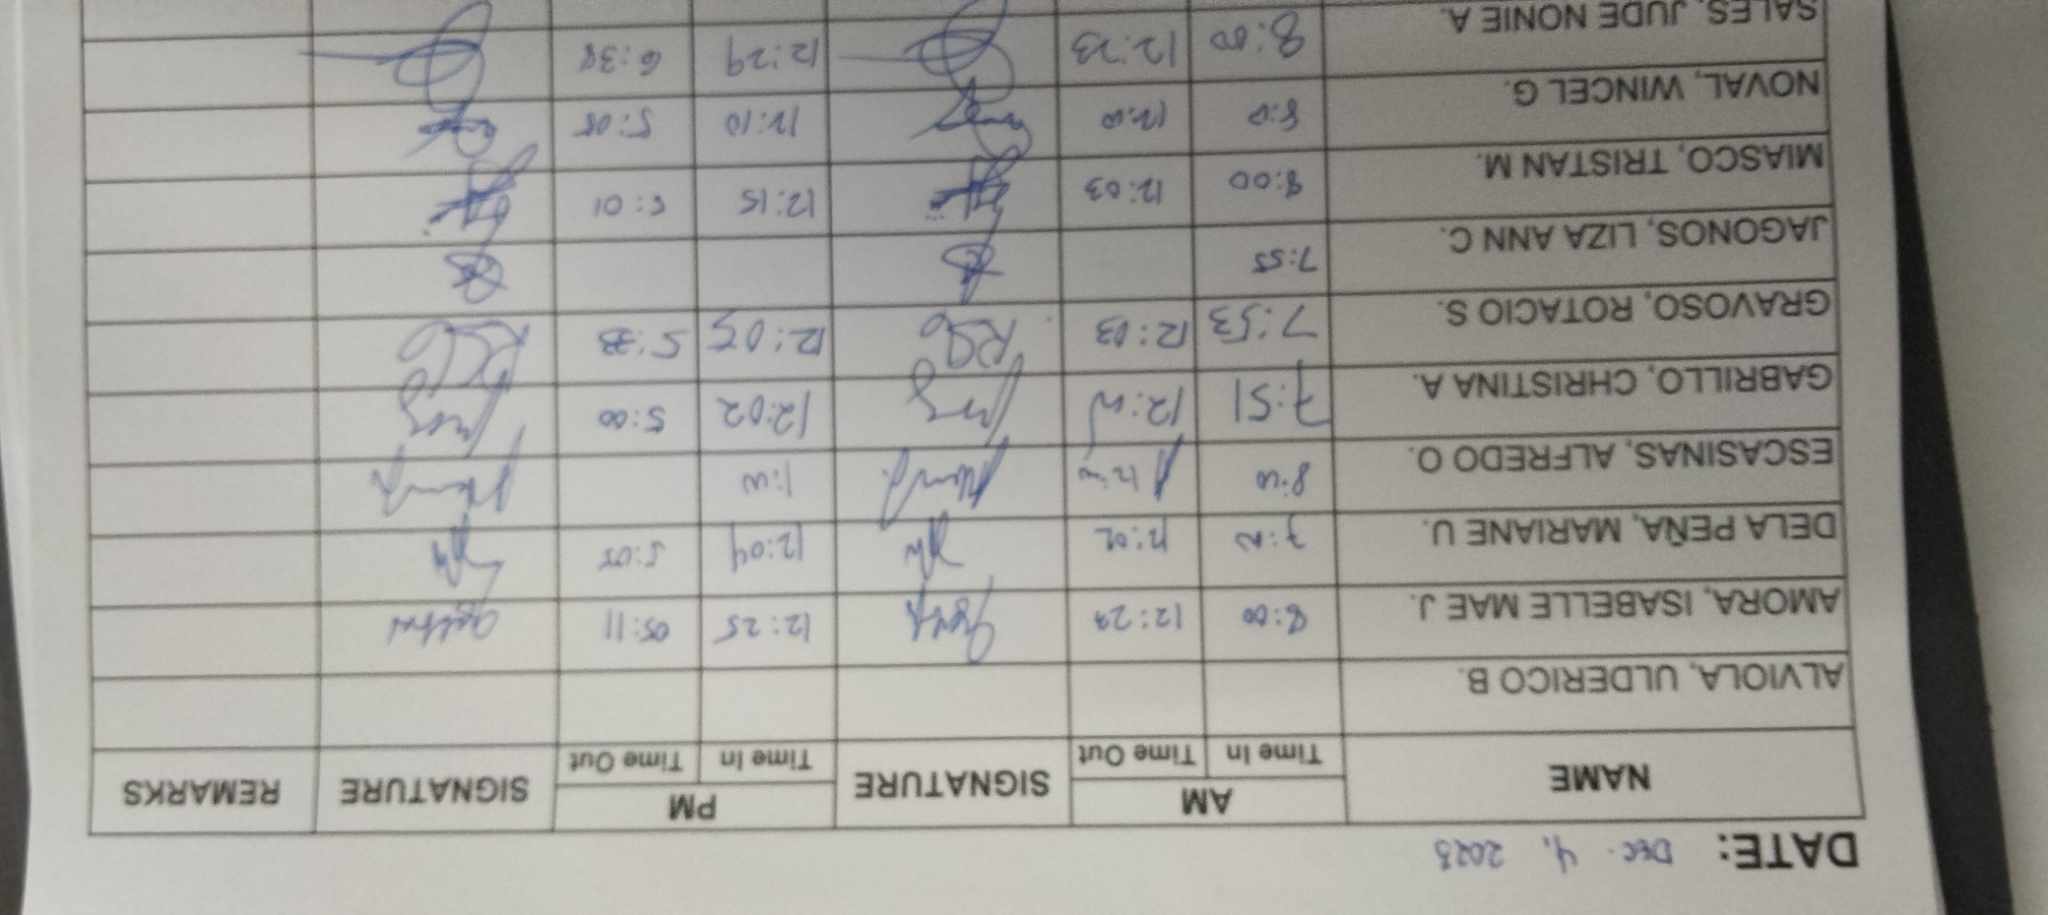 DATE: DEC. 4, 2023
NAME AM SIGNATURE PM SIGNATURE REMARKS
Time In Time Out Time In Time Out
ALVIOLA, ULDERICO B.
AMORA, ISABELLE MAE J. 8:00 12:25 05:11
DELA PEÑA, MARIANE U. 12:02 12:04 5:05
ESCASINAS, ALFREDO O. 8:00 1:00
GABRILLO, CHRISTINA A. 7:51 12:00 12:02 5:00
GRAVOSO, ROTACIO S. 7:53 12:03 12:05 5:33
JAGONOS, LIZA ANN C. 7:55
MIASCO, TRISTAN M. 8:00 12:03 12:15 5:01
NOVAL, WINCEL G. 12:00 12:10 5:05
SALES, JUDE NONIE A. 8:00 12:23 12:29 6:38